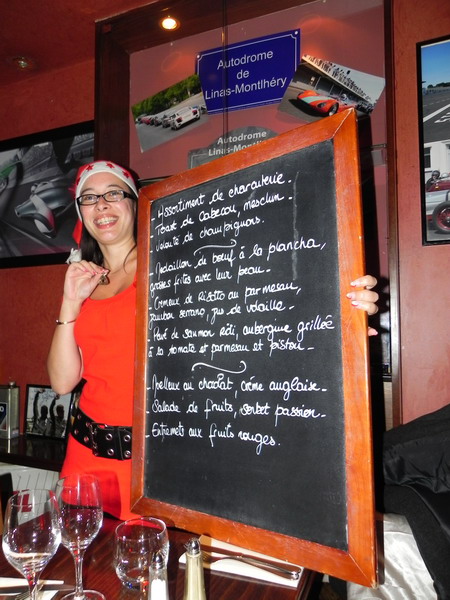 Autodrome
de
Linas-Montlhéry
Autodrome
Linas-Montlhéry
- Assortiment de charcuterie.
- Toast de Cabecou, mesclun.
- Velouté de champignons.
- Médaillon de bœuf à la plancha,
grosses frites avec leur peau.
- Crémeux de Risotto au parmesan,
jambon serrano, jus de volaille.
- Pavé de saumon Rôti, aubergine grillée
à la tomate et parmesan et pistou.
- Moelleux au chocolat, crème anglaise.
- Salade de fruits, sorbet passion.
- Entremets aux fruits rouges.